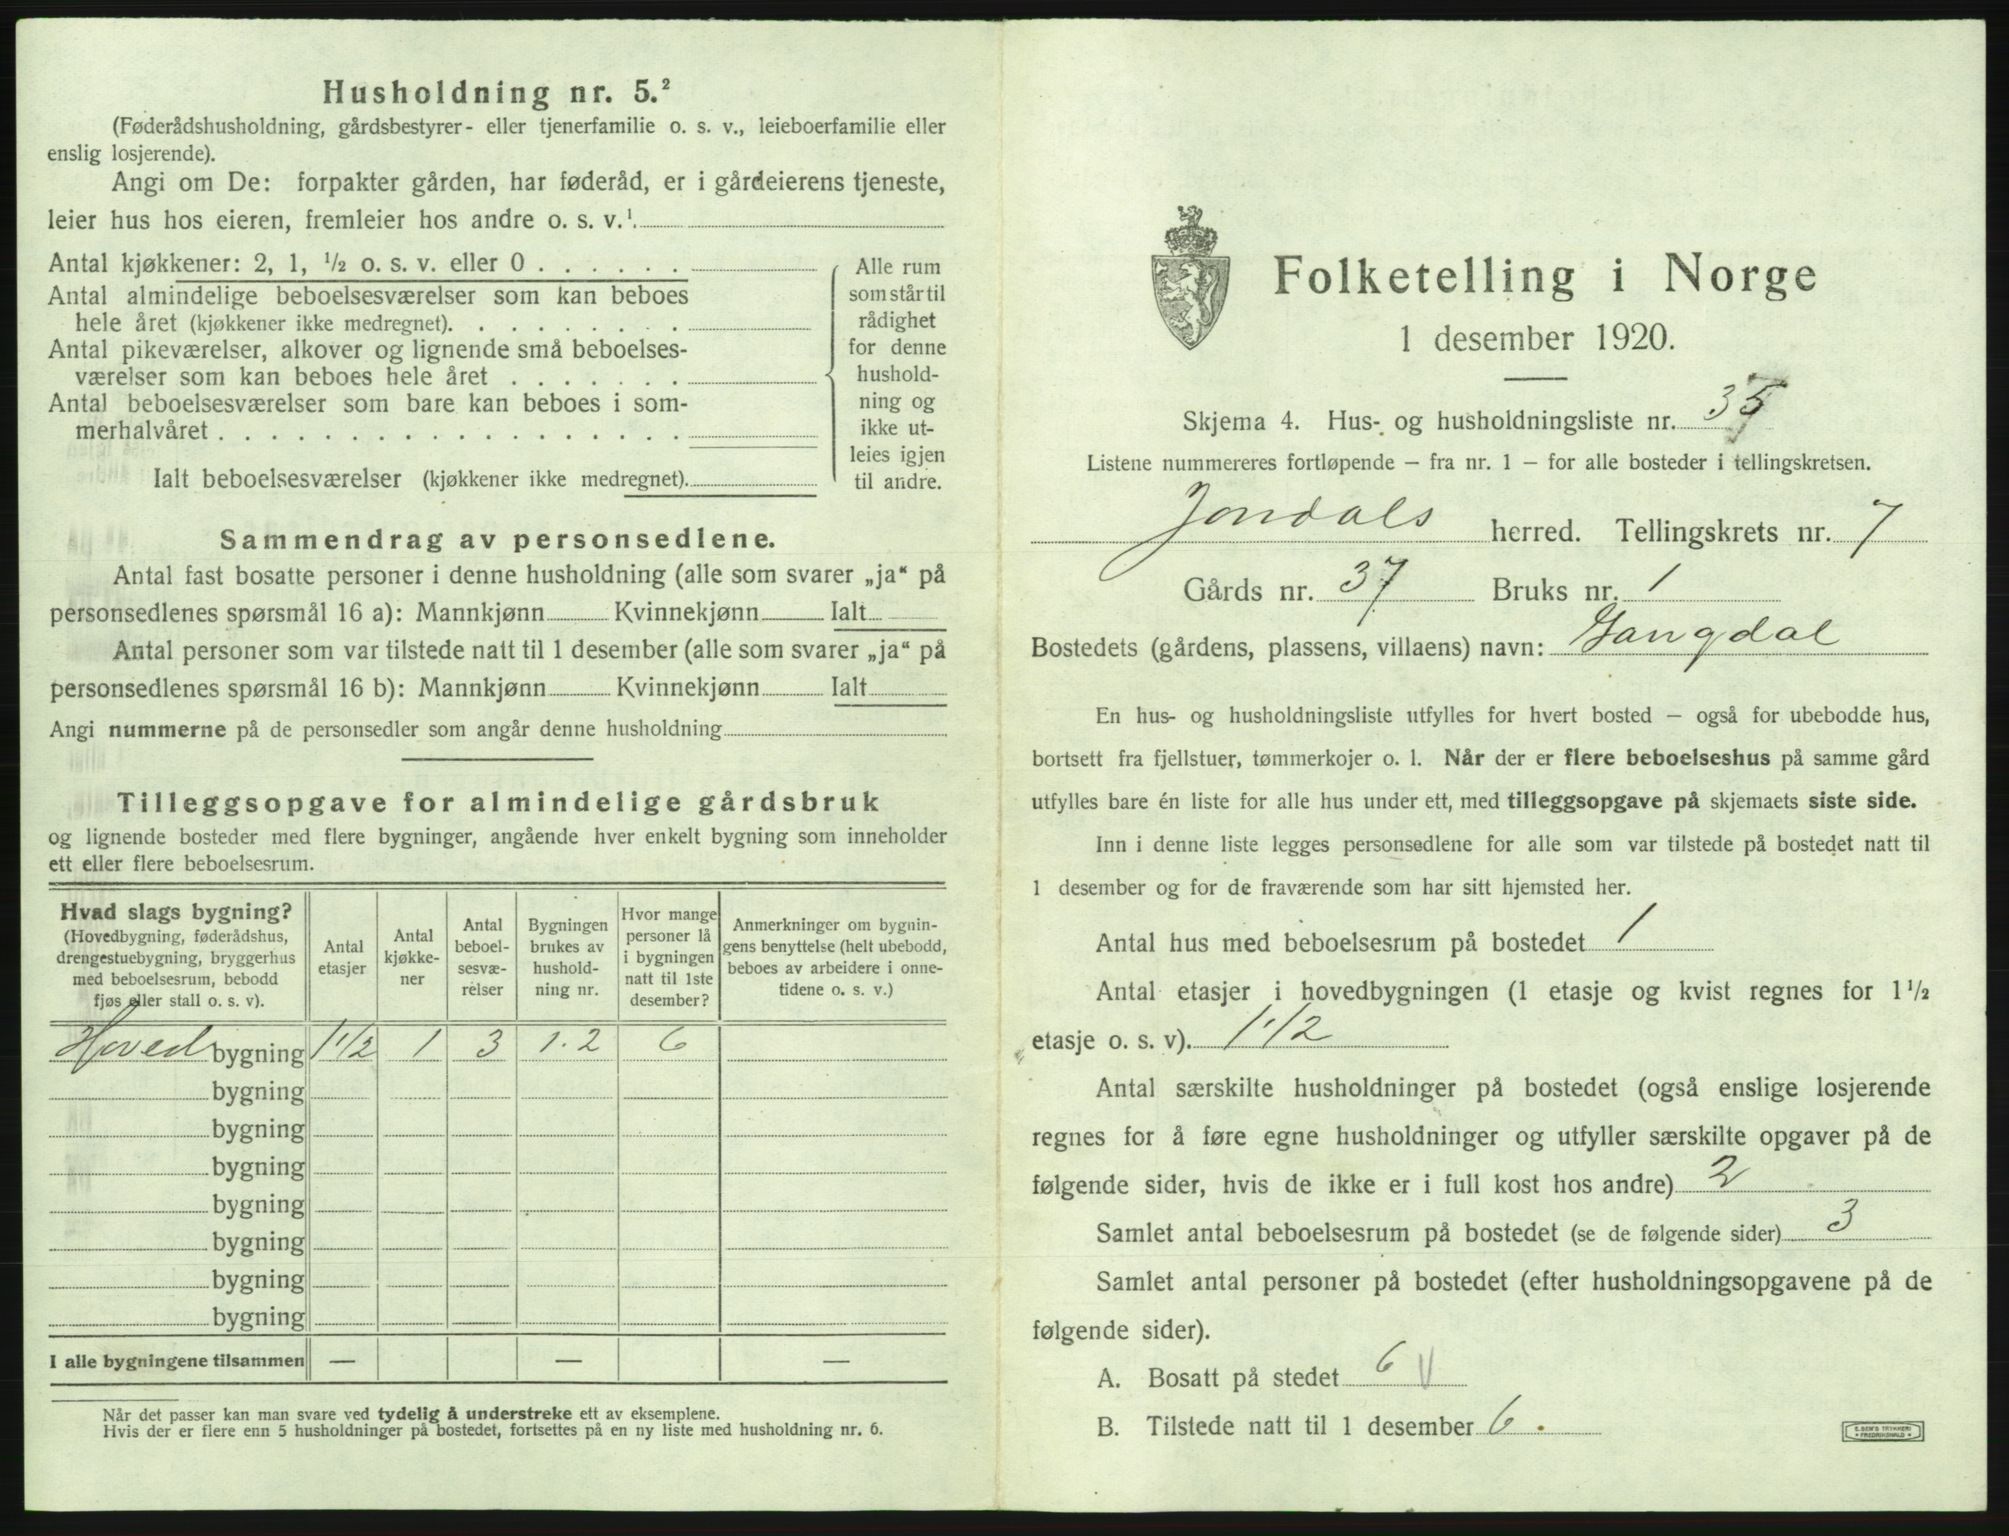 Husholdning nr. 5.²
(Føderådshusholdning, gårdsbestyrer- eller tjenerfamilie o. s. v., leieboerfamilie eller
enslig losjerende).
Angi om De: forpakter gården, har føderåd, er i gårdeierens tjeneste,
leier hus hos eieren, fremleier hos andre o. s. v.¹
Antal kjøkkener: 2, 1, ½ o. s. v. eller 0 . . . . . .
Antal almindelige beboelsesværelser som kan beboes
hele året (kjøkkener ikke medregnet). . . . . . . . .
Antal pikeværelser, alkover og lignende små beboelses-
værelser som kan beboes hele året . . . . . . .
Antal beboelsesværelser som bare kan beboes i som-
merhalvåret . . . . . . . . . . . . . . . . . .
Ialt beboelsesværelser (kjøkkener ikke medregnet).
Alle rum
som står til
rådighet
for denne
hushold-
ning og
ikke ut-
leies igjen
til andre.
Sammendrag av personsedlene.
Antal fast bosatte personer i denne husholdning (alle som svarer „ja“ på
personsedlenes spørsmål 16 a): Mannkjønn Kvinnekjønn Ialt
Antal personer som var tilstede natt til 1 desember (alle som svarer „ja“ på
personsedlenes spørsmål 16 b): Mannkjønn Kvinnekjønn Ialt
Angi nummerne på de personsedler som angår denne husholdning
Tilleggsopgave for almindelige gårdsbruk
og lignende bosteder med flere bygninger, angående hver enkelt bygning som inneholder
ett eller flere beboelsesrum.
Hvad slags bygning?
(Hovedbygning, føderådshus,
drengestuebygning, bryggerhus
med beboelsesrum, bebodd
fjøs eller stall o. s. v).
Antal
etasjer
Antal
kjøkke-
ner
Antal
beboel-
sesvæ-
relser
Bygningen
brukes av
hushold-
ning nr.
Hvor mange
personer lå
i bygningen
natt til 1ste
desember?
Anmerkninger om bygnin-
gens benyttelse (helt ubebodd,
beboes av arbeidere i onne-
tidene o. s. v.)
Hoved bygning 1 1/2 1 3 1.2 6
bygning
bygning
bygning
bygning
bygning
bygning
bygning
I alle bygningene tilsammen — — —
Når det passer kan man svare ved tydelig å understreke ett av eksemplene.
Hvis der er flere enn 5 husholdninger på bostedet, fortsettes på en ny liste med husholdning nr. 6.
Folketelling i Norge
1 desember 1920.
Skjema 4. Hus- og husholdningsliste nr. 35
Listene nummereres fortløpende – fra nr. 1 – for alle bosteder i tellingskretsen.
Jondals herred. Tellingskrets nr. 7
Gårds nr. 37 Bruks nr. 1
Bostedets (gårdens, plassens, villaens) navn: Gangdal
En hus- og husholdningsliste utfylles for hvert bosted – også for ubebodde hus,
bortsett fra fjellstuer, tømmerkojer o. l. Når der er flere beboelseshus på samme gård
utfylles bare én liste for alle hus under ett, med tilleggsopgave på skjemaets siste side.
Inn i denne liste legges personsedlene for alle som var tilstede på bostedet natt til
1 desember og for de fraværende som har sitt hjemsted her.
Antal hus med beboelsesrum på bostedet 1
Antal etasjer i hovedbygningen (1 etasje og kvist regnes for 1½
etasje o. s. v). 1 1/2
Antal særskilte husholdninger på bostedet (også enslige losjerende
regnes for å føre egne husholdninger og utfyller særskilte opgaver på de
følgende sider, hvis de ikke er i full kost hos andre) 2
Samlet antal beboelsesrum på bostedet (se de følgende sider) 3
Samlet antal personer på bostedet (efter husholdningsopgavene på de
følgende sider).
A. Bosatt på stedet 6
B. Tilstede natt til 1 desember 6.